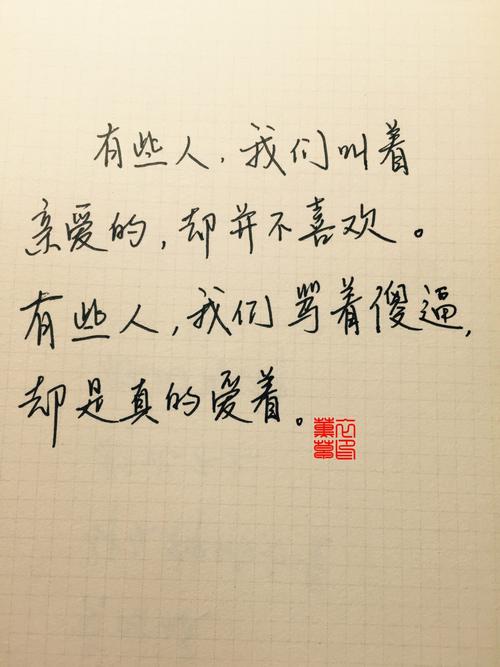 有些人，我们叫着
亲爱的，却并不喜欢。
有些人，我们骂着傻逼，
却是真的爱着。